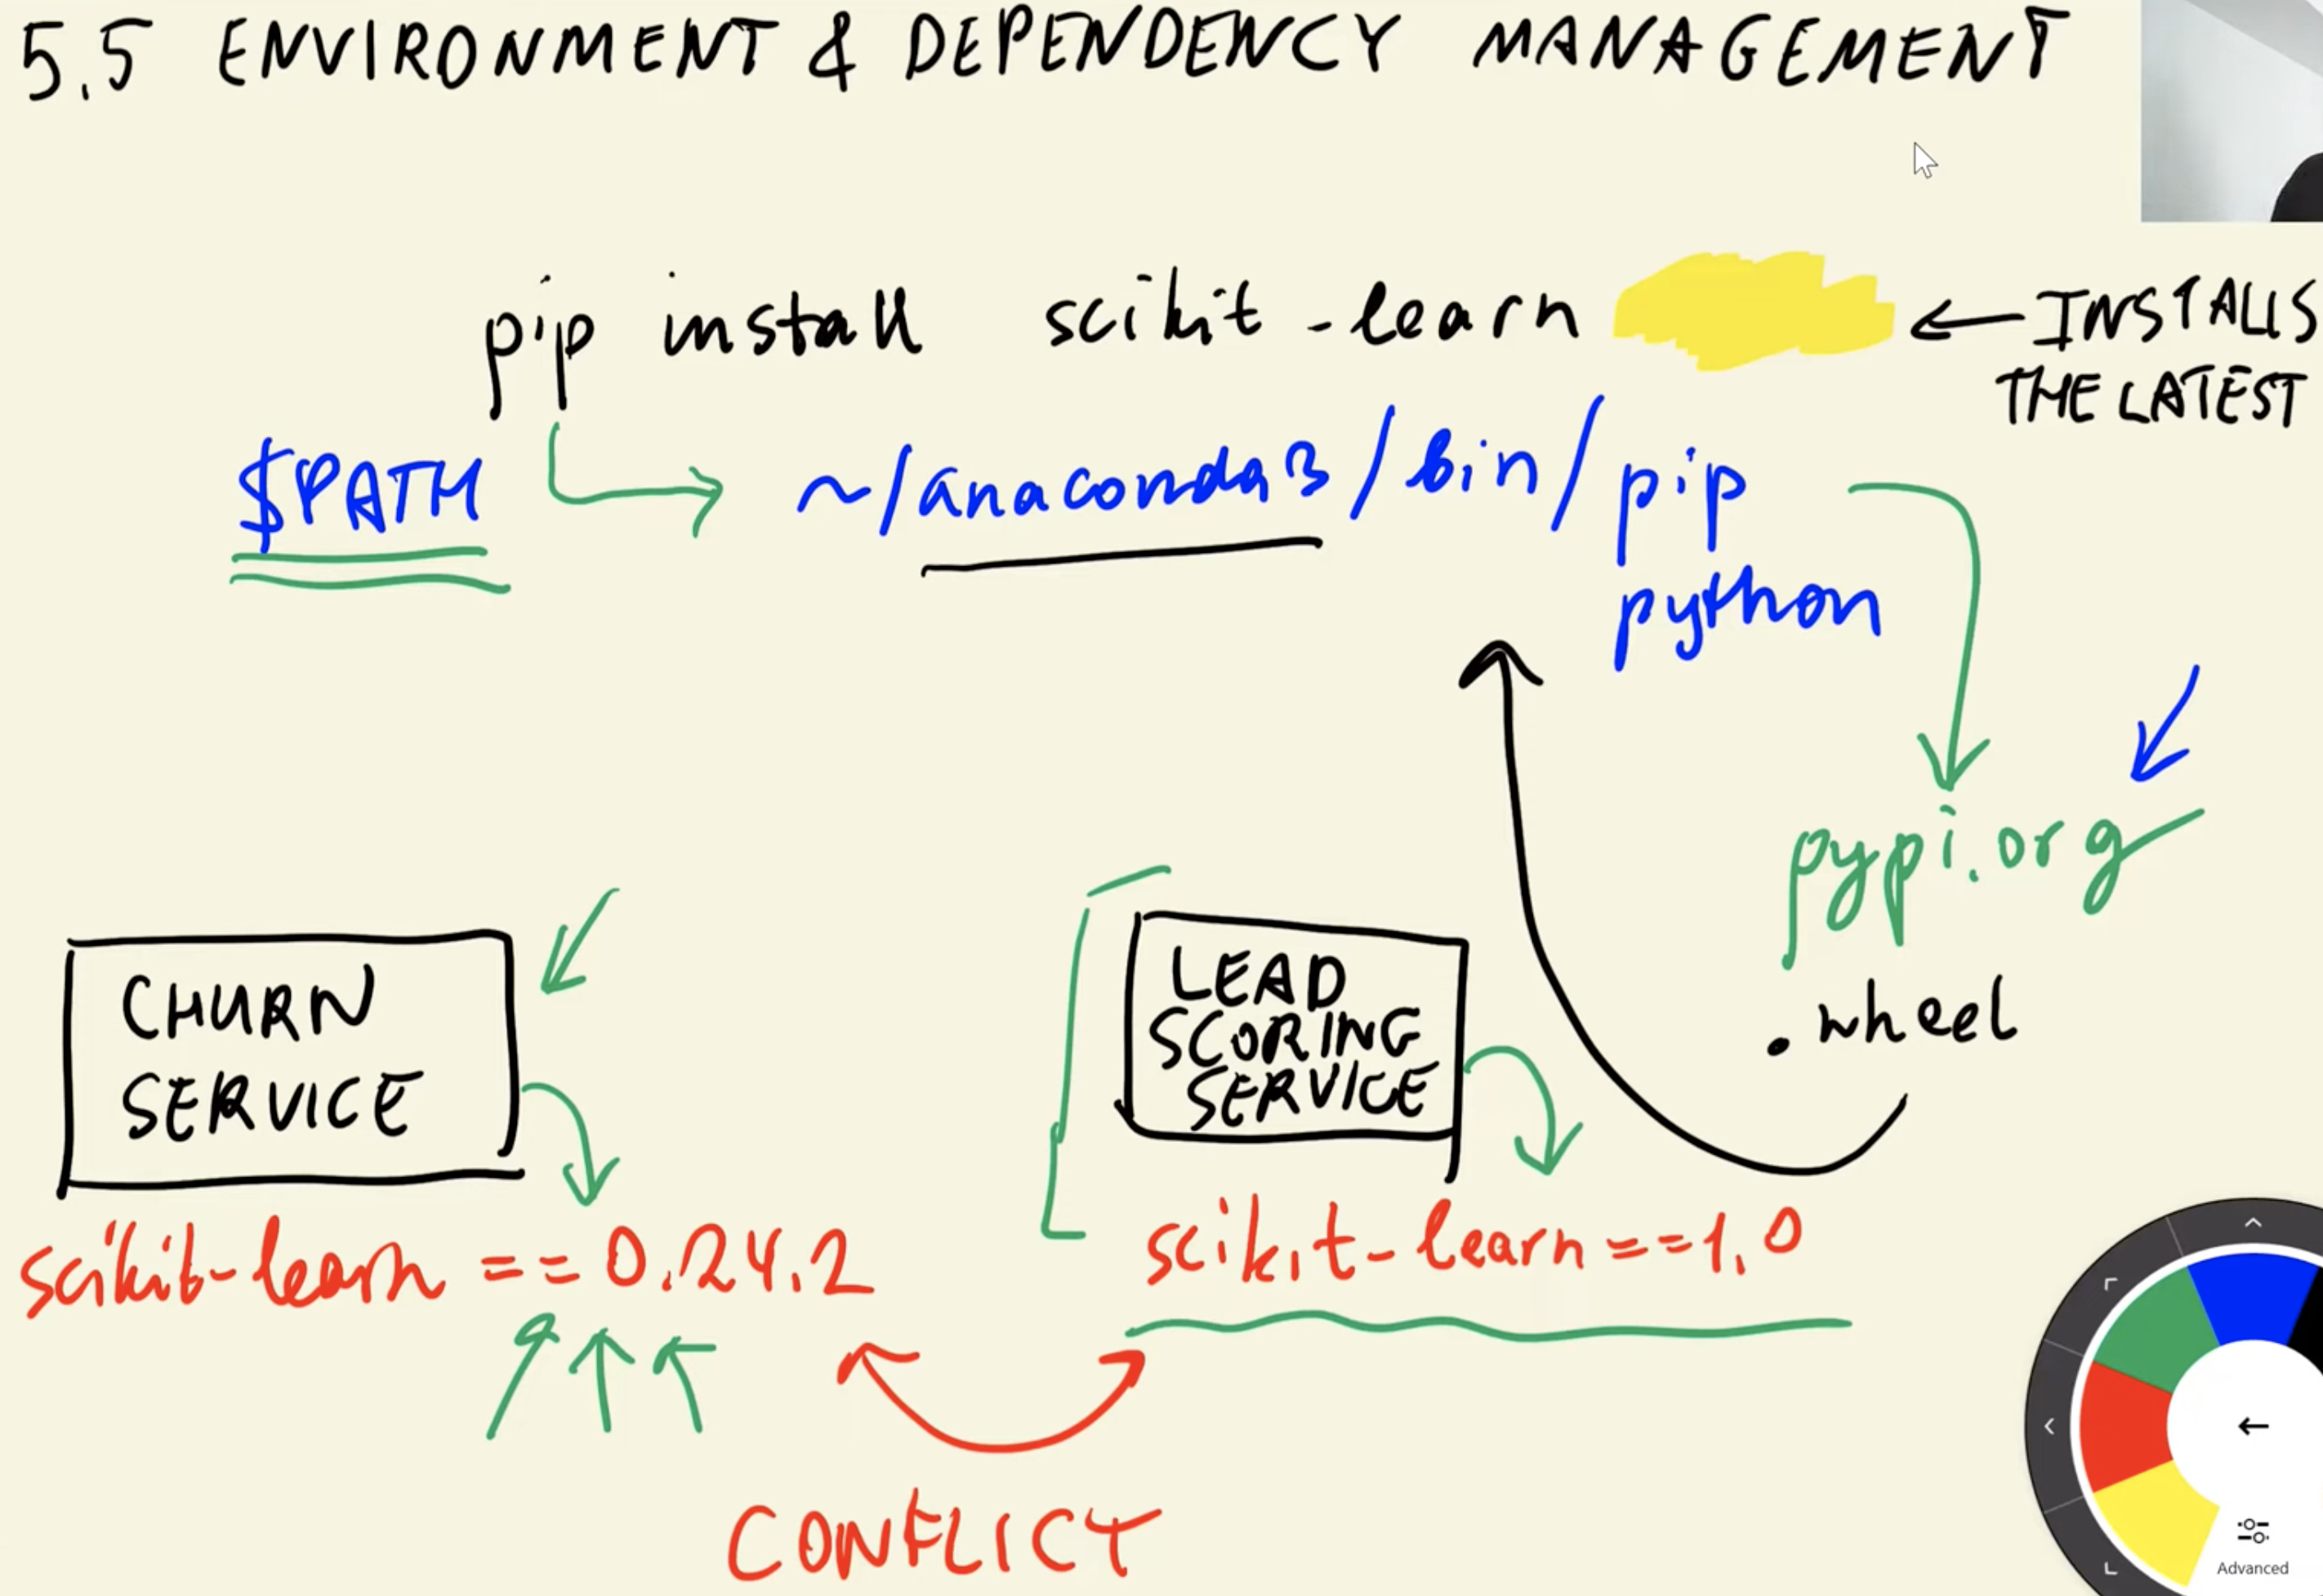 5.5 ENVIRONMENT & DEPENDENCY MANAGEMENT
pip install scikit-learn ← INSTALLS
THE LATEST
$PATH → ~/anaconda3/bin/pip
python
pypi.org
.wheel
CHURN
SERVICE
LEAD
SCORING
SERVICE
scikit-learn ==0.24.2
scikit-learn==1.0
CONFLICT
Advanced